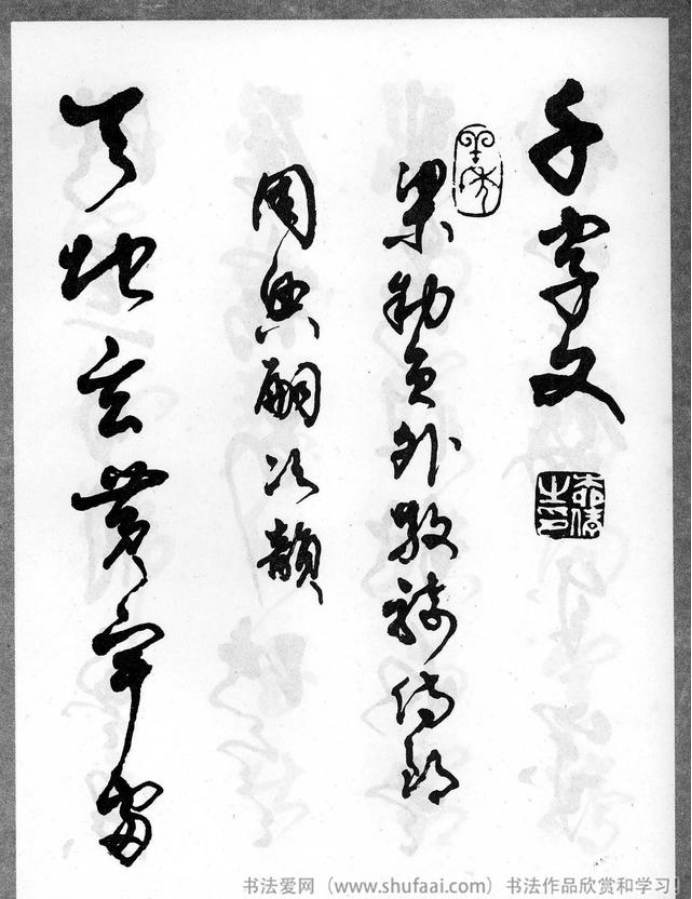 千字文
梁勅員外散騎侍郎
周興嗣次韻
天地玄黄宇宙
书法爱网（www.shufaai.com）书法作品欣赏和学习！